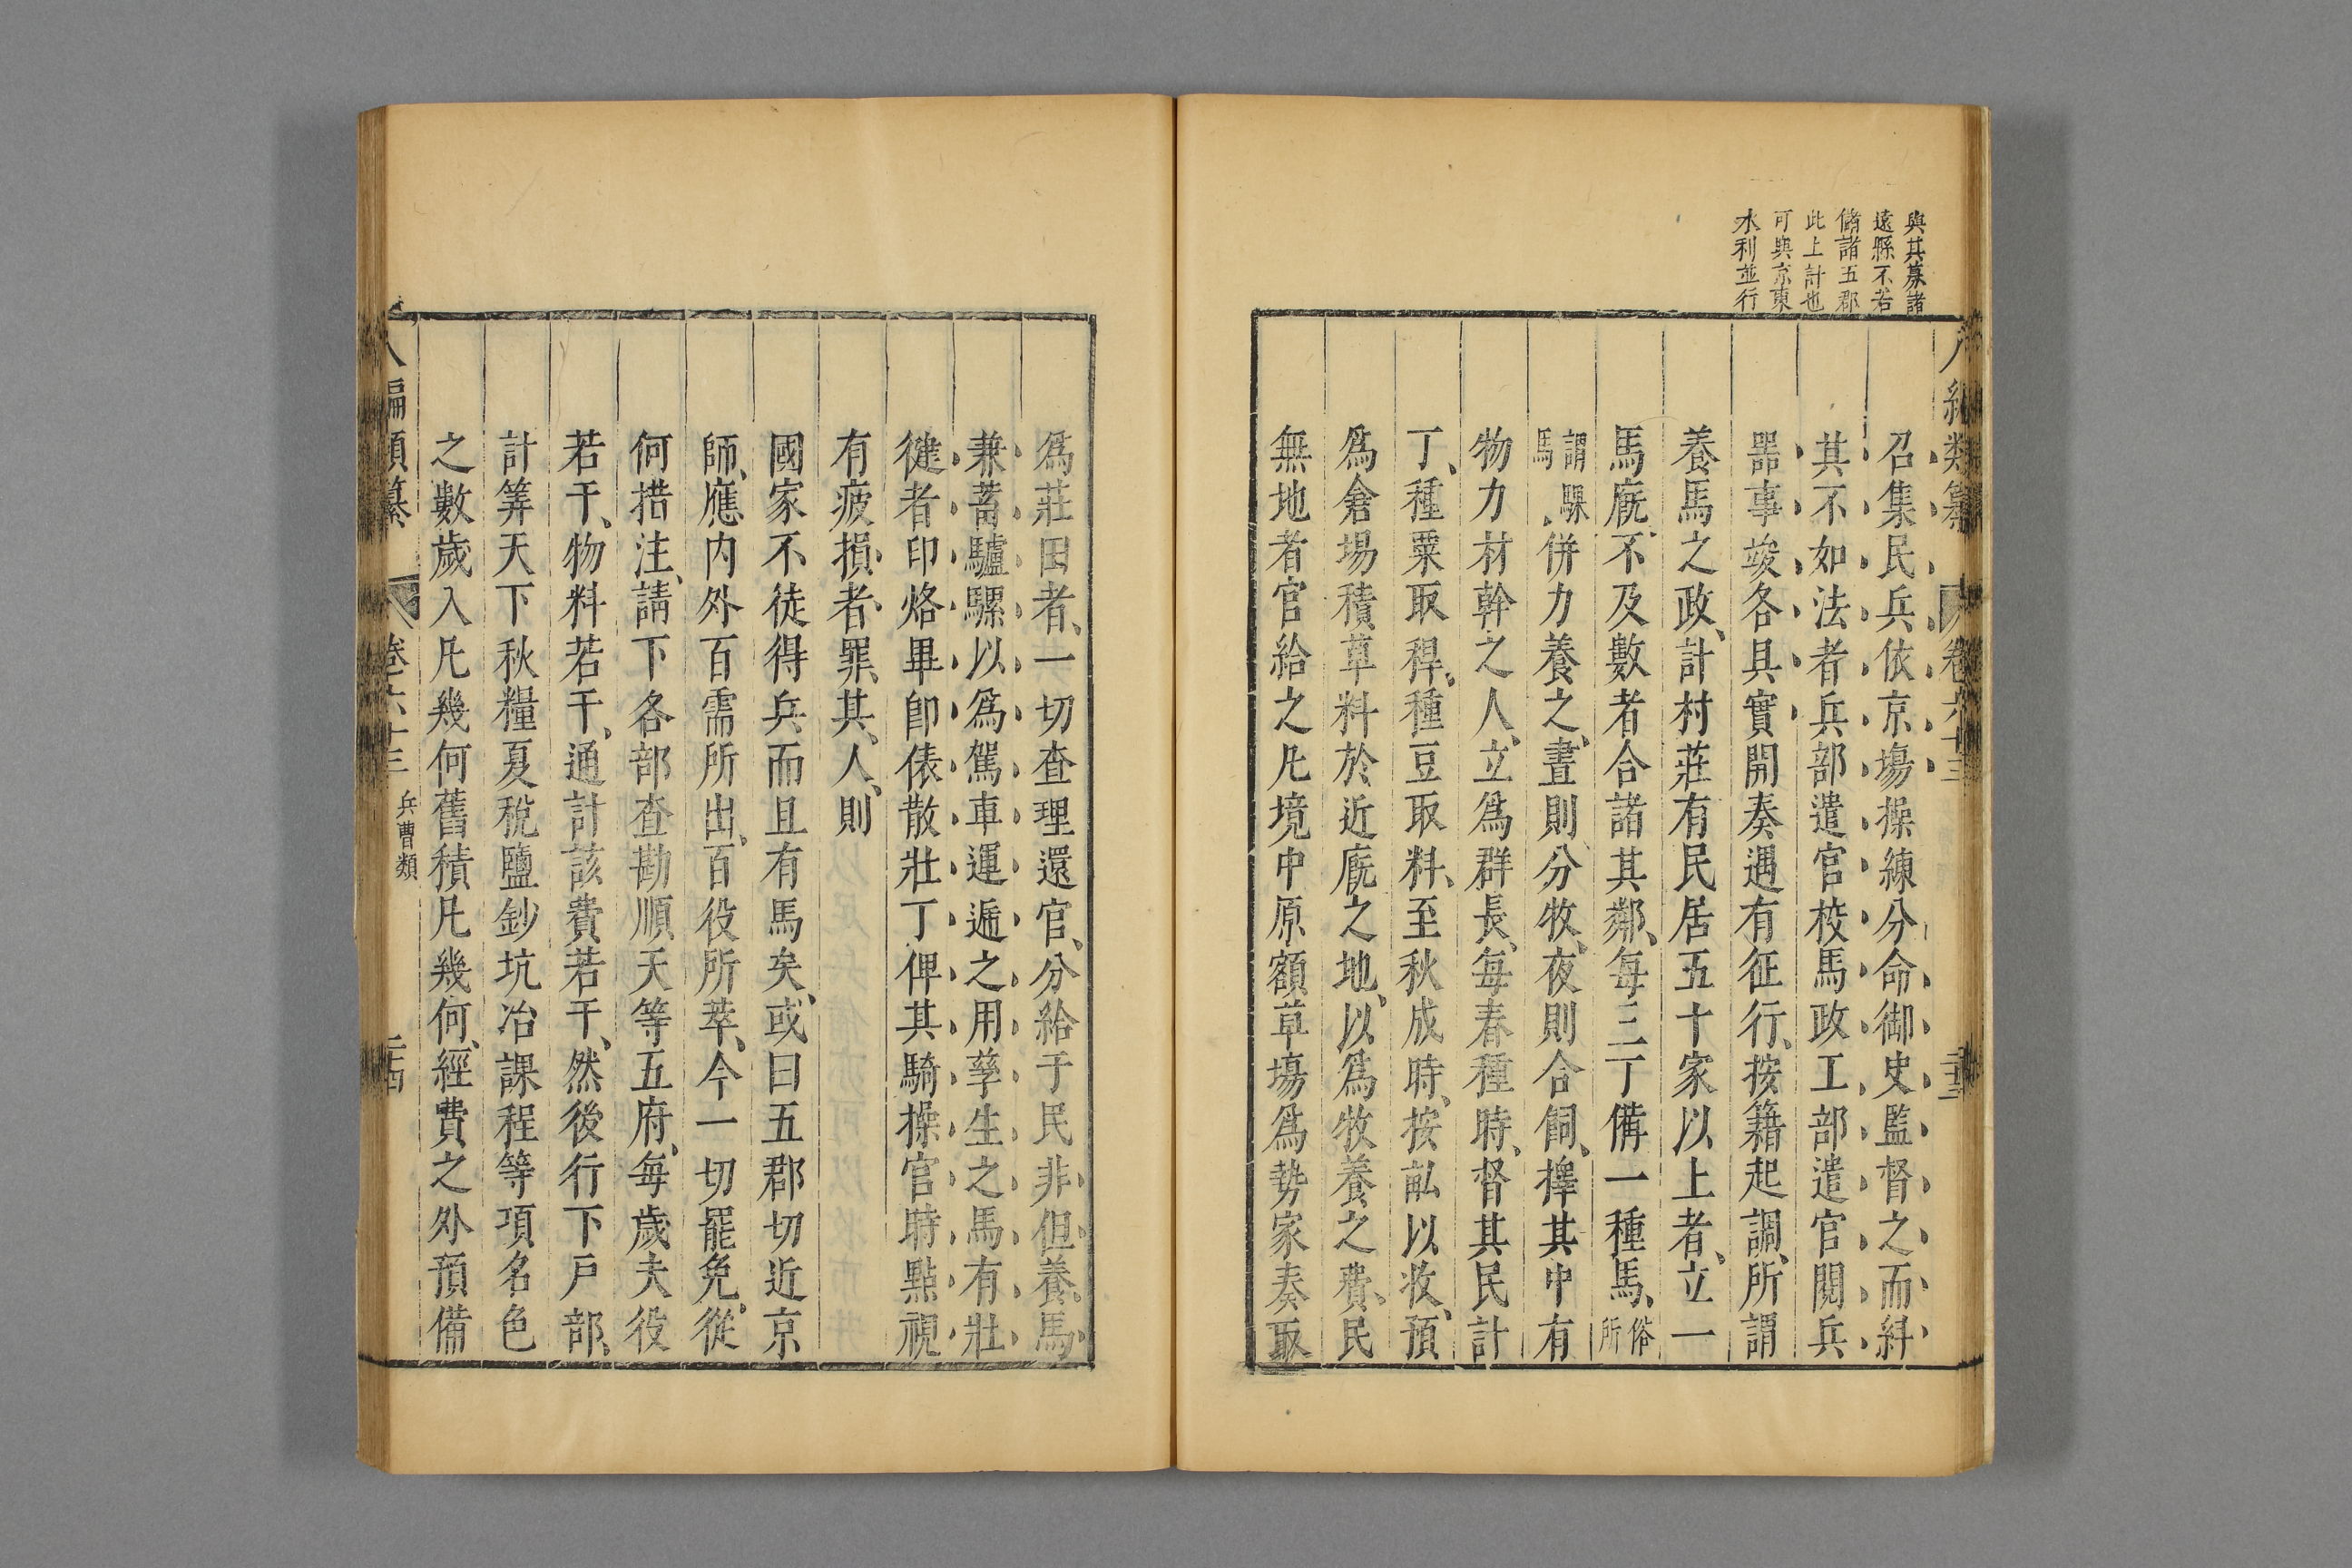 與其募諸
遠縣不若
備諸五郡
此上計也
可與京東
水利並行
八編類纂 卷六十三 二十三
召集民兵依京塲操練分命御史監督之而糾
其不如法者兵部遣官校馬政工部遣官閱兵
器事竣各具實開奏遇有征行、按籍起調、所謂
養馬之政、計村莊有民居五十家以上者、立一
馬廐、不及數者合諸其鄰、每三丁備一種馬、俗所
謂騍馬、併力養之、晝則分牧、夜則合飼、擇其中有
物力材幹之人、立爲群長、每春種時、督其民計
丁、種粟取稈、種豆取料、至秋成時、按畝以收、預
爲倉場積草料於近廐之地、以爲牧養之費、民
無地者官給之凡境中原額草塲爲勢家奏取
爲莊田者、一切查理還官、分給于民非但養馬
兼蓄驢騾以爲駕車運遞之用孳生之馬有壯
健者印烙畢卽俵散壯丁俾其騎操官時點視
有疲損者、罪其人、則
國家不徒得兵而且有馬矣、或曰五郡切近京
師、應内外百需所出、百役所萃、今一切罷免、從
何措注、請下各部查勘順天等五府、每歲夫役
若干、物料若干、通計該費若干、然後行下戸部、
計筭天下秋糧夏稅鹽鈔坑冶課程等項名色
之數歲入凡幾何舊積凡幾何、經費之外預備
八編類纂 卷六十三 兵曹類 二十四